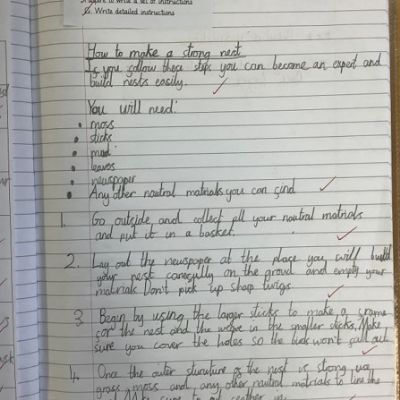 to write a set of instructions
Write detailed instructions
How to make a strong nest
If you follow these steps you can become an expert and
build nests easily.
You will need:
• moss
• sticks
• mud
• leaves
• newspaper
• Any other nautral matirals you can find
1. Go outside and collect all your nautral matirals
and put it in a basket.
2. Lay out the newspaper at the place you will build
your nest carefully on the groud and empty your
matirals Don't pick up sharp twigs
3. Begin by using the larger sticks to make a frame
for the nest and the wave in the smaller sticks. Make
sure you cover the holes so the birds won't fall out.
4. Once the outer structure of the nest is strong use
grass, moss and any other nautral matirials to line the